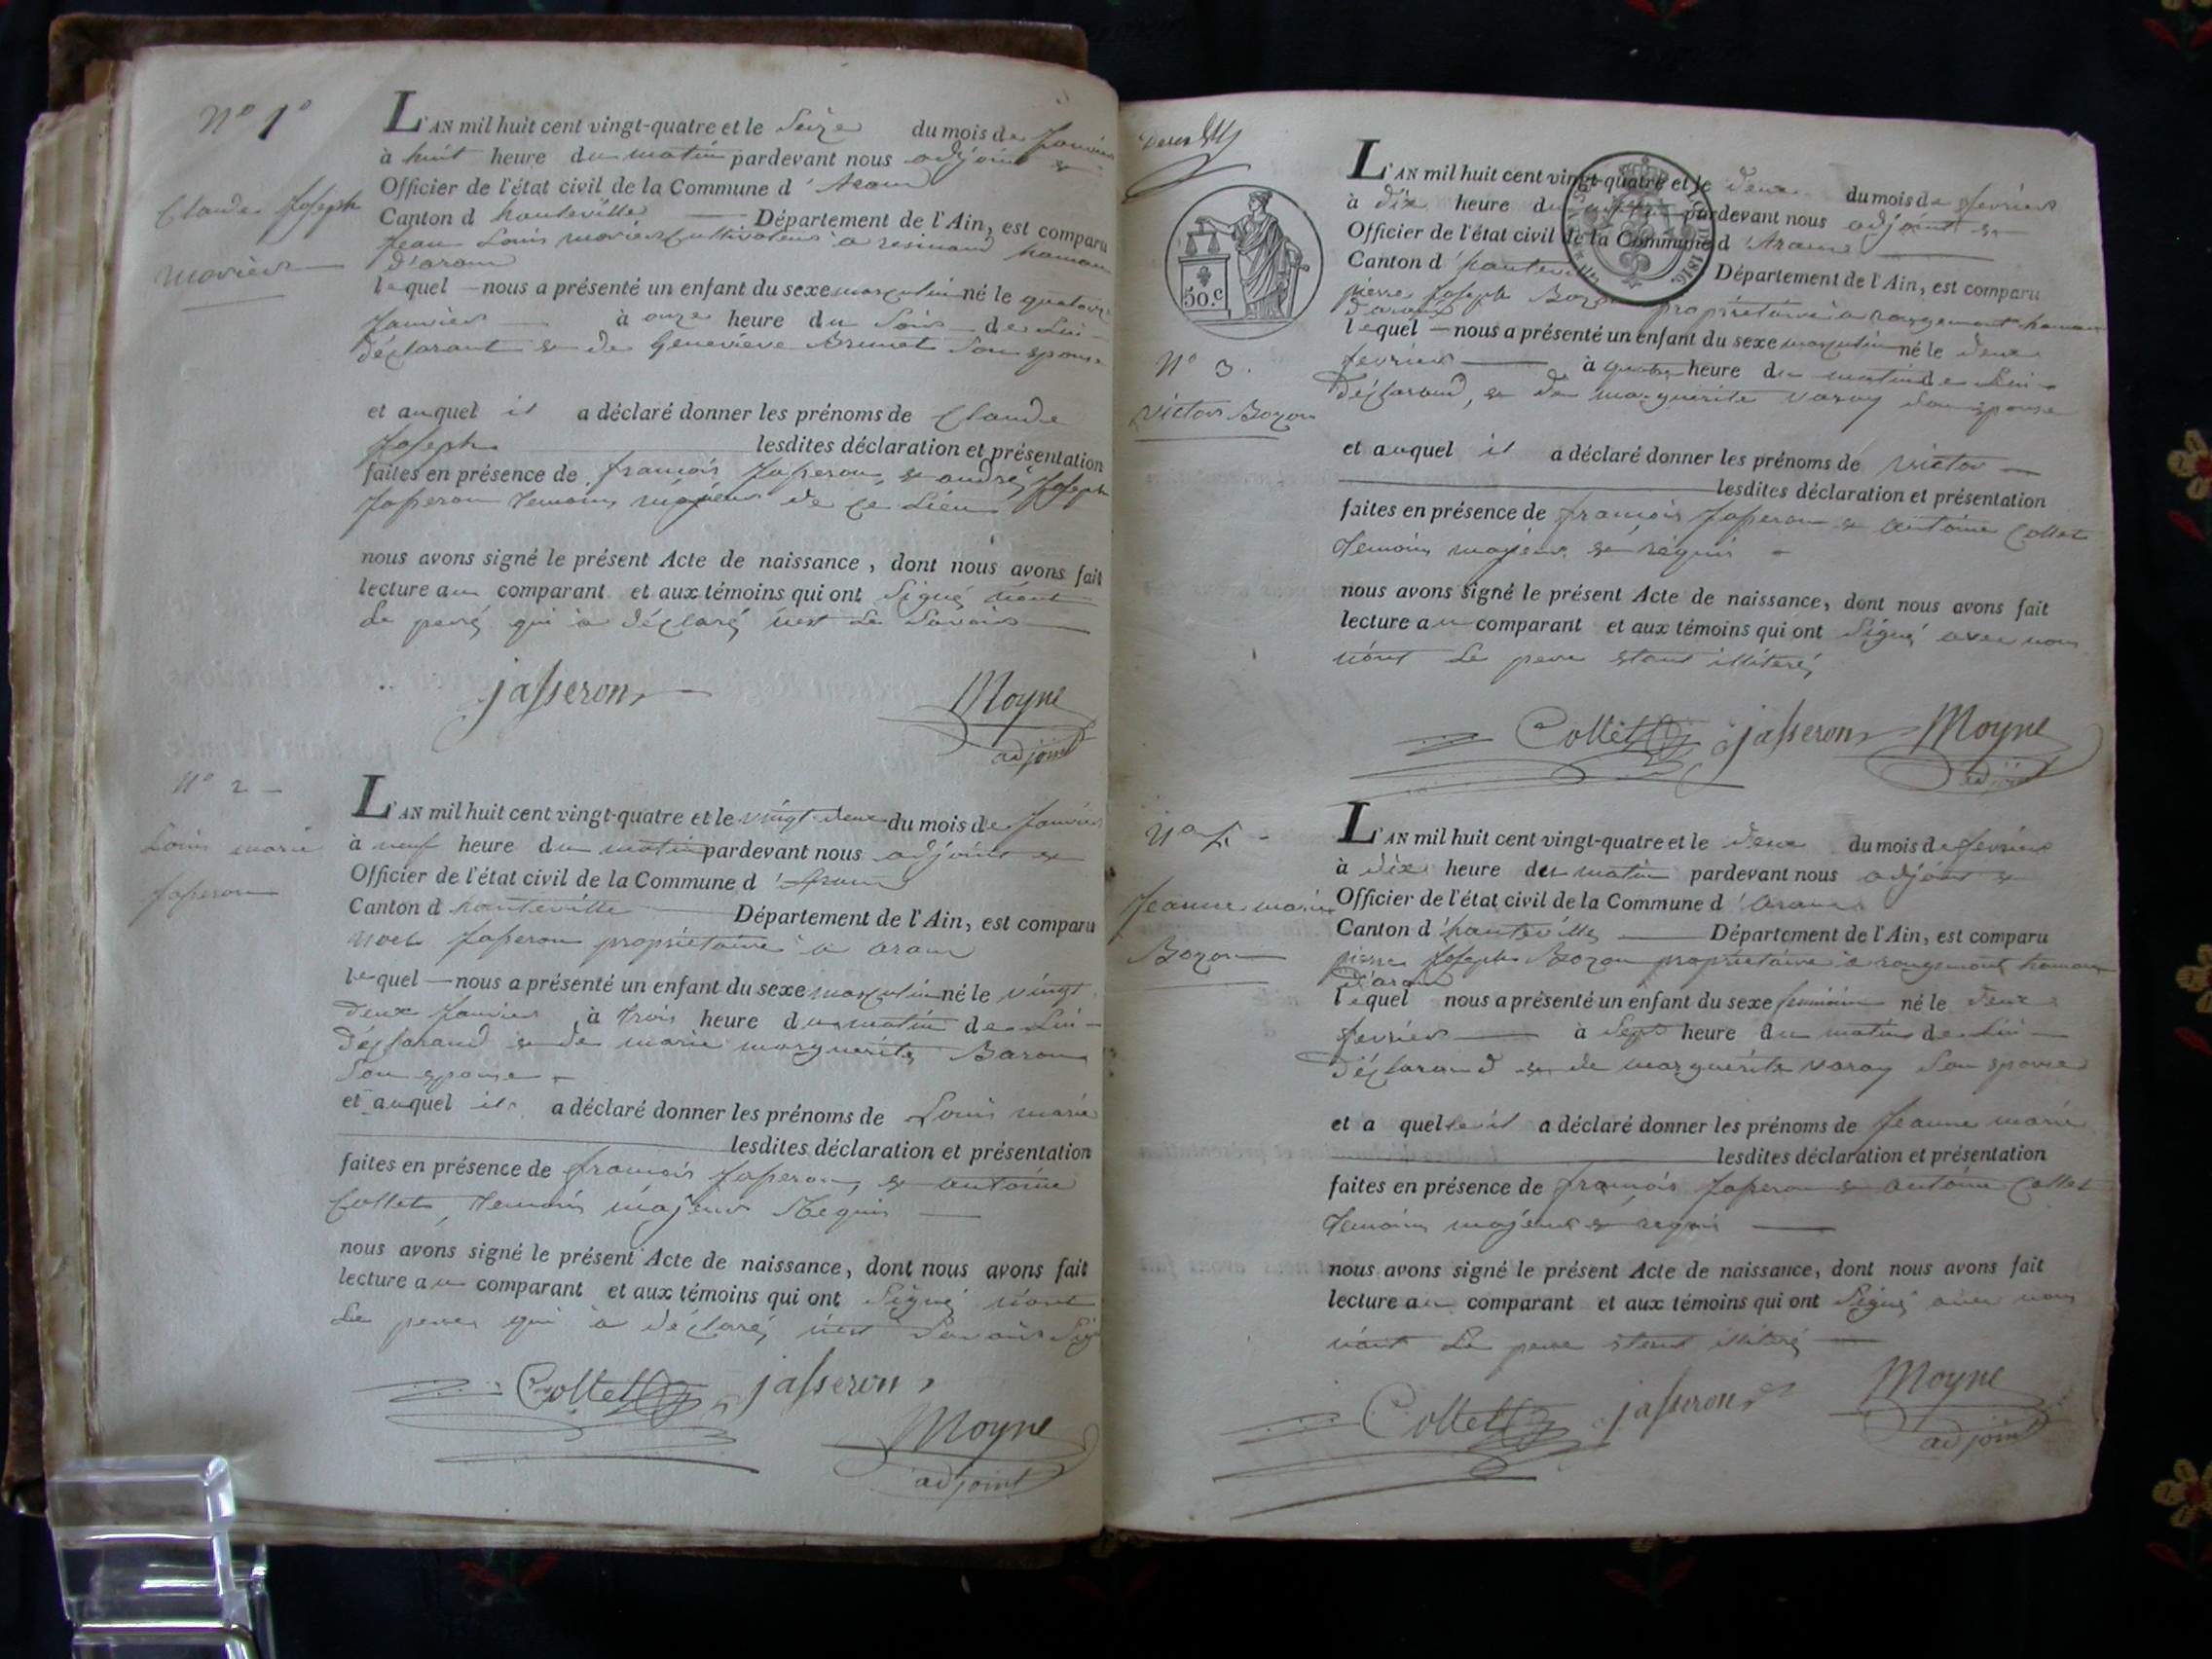 N° 1°
Claude Joseph
L'AN mil huit cent vingt-quatre et le Seize du mois de Janvier
à huit heure du matin pardevant nous adjoint &
Officier de l'état civil de la Commune d'Aranc
Canton d hauteville Département de l'Ain, est comparu
Jean Louis cultivateur a resinand hameau
d'aranc
lequel nous a présenté un enfant du sexe masculin né le quatorze
Janvier à onze heure du Soir de Lui
déclarant & de Genevieve Brunet Son epouse
et auquel il a déclaré donner les prénoms de Claude
Joseph lesdites déclaration et présentation
faites en présence de françois Jasseron, & andré Joseph
Jasseron temoins majeurs de ce Lieu
nous avons signé le présent Acte de naissance, dont nous avons fait
lecture au comparant et aux témoins qui ont Signé non
Le peré qui à déclaré Le Savoir
jasseron
Moyne
adjoint
N° 2
Louis marie
Jasseron
L'AN mil huit cent vingt-quatre et le vingt deux du mois de Janvier
à neuf heure du matin pardevant nous adjoint &
Officier de l'état civil de la Commune d'Aranc
Canton d hauteville Département de l'Ain, est comparu
noel Jasseron proprietaire a aranc
lequel nous a présenté un enfant du sexe masculin né le vingt
deux Janvier à trois heure du matin de Lui
déclarand & de marie marguerite Baron
Son epouse
et auquel il a déclaré donner les prénoms de Louis marie
lesdites déclaration et présentation
faites en présence de françois Jasseron, & antoine
Collet, temoins majeurs Requis
nous avons signé le présent Acte de naissance, dont nous avons fait
lecture au comparant et aux témoins qui ont Signé
Le pere qui à déclaré Savoir
Collet jasseron
Moyne
adjoint
50.c
N° 3.
victor Bozon
L'AN mil huit cent vingt-quatre et le deux du mois de fevrier
à dix heure du pardevant nous adjoint &
Officier de l'état civil de la Commune d'Aranc
Canton d'hauteville Département de l'Ain, est comparu
pierre Joseph Bozon propriétaire à rougemont hameau
d'aranc
lequel nous a présenté un enfant du sexe masculin né le deux
fevrier à quatre heure du matin de Lui
déclarand, & de marguerite varay Son epouse
et auquel il a déclaré donner les prénoms de victor
lesdites déclaration et présentation
faites en présence de françois Jasseron & antoine Collet
temoins majeurs & réquis
nous avons signé le présent Acte de naissance, dont nous avons fait
lecture au comparant et aux témoins qui ont Signé avec nous
Le pere etant illiteré
Collet jasseron Moyne
adjoint
N° 4
Jeanne marie
Bozon
L'AN mil huit cent vingt-quatre et le deux du mois de fevrier
à dix heure du matin pardevant nous adjoint &
Officier de l'état civil de la Commune d'aranc
Canton d'hauteville Département de l'Ain, est comparu
pierre Joseph Bozon propriétaire à rougemont hameau
d'aranc
lequel nous a présenté un enfant du sexe feminin né le deux
fevrier à Sept heure du matin de Lui
déclarand & de marguerite varay Son epouse
et a quelle il a déclaré donner les prénoms de Jeanne marie
lesdites déclaration et présentation
faites en présence de françois Jasseron & antoine Collet
temoins majeurs & requis
nous avons signé le présent Acte de naissance, dont nous avons fait
lecture au comparant et aux témoins qui ont Signé avec nous
Le pere etant illiteré
Collet jasseron
Moyne
adjoint